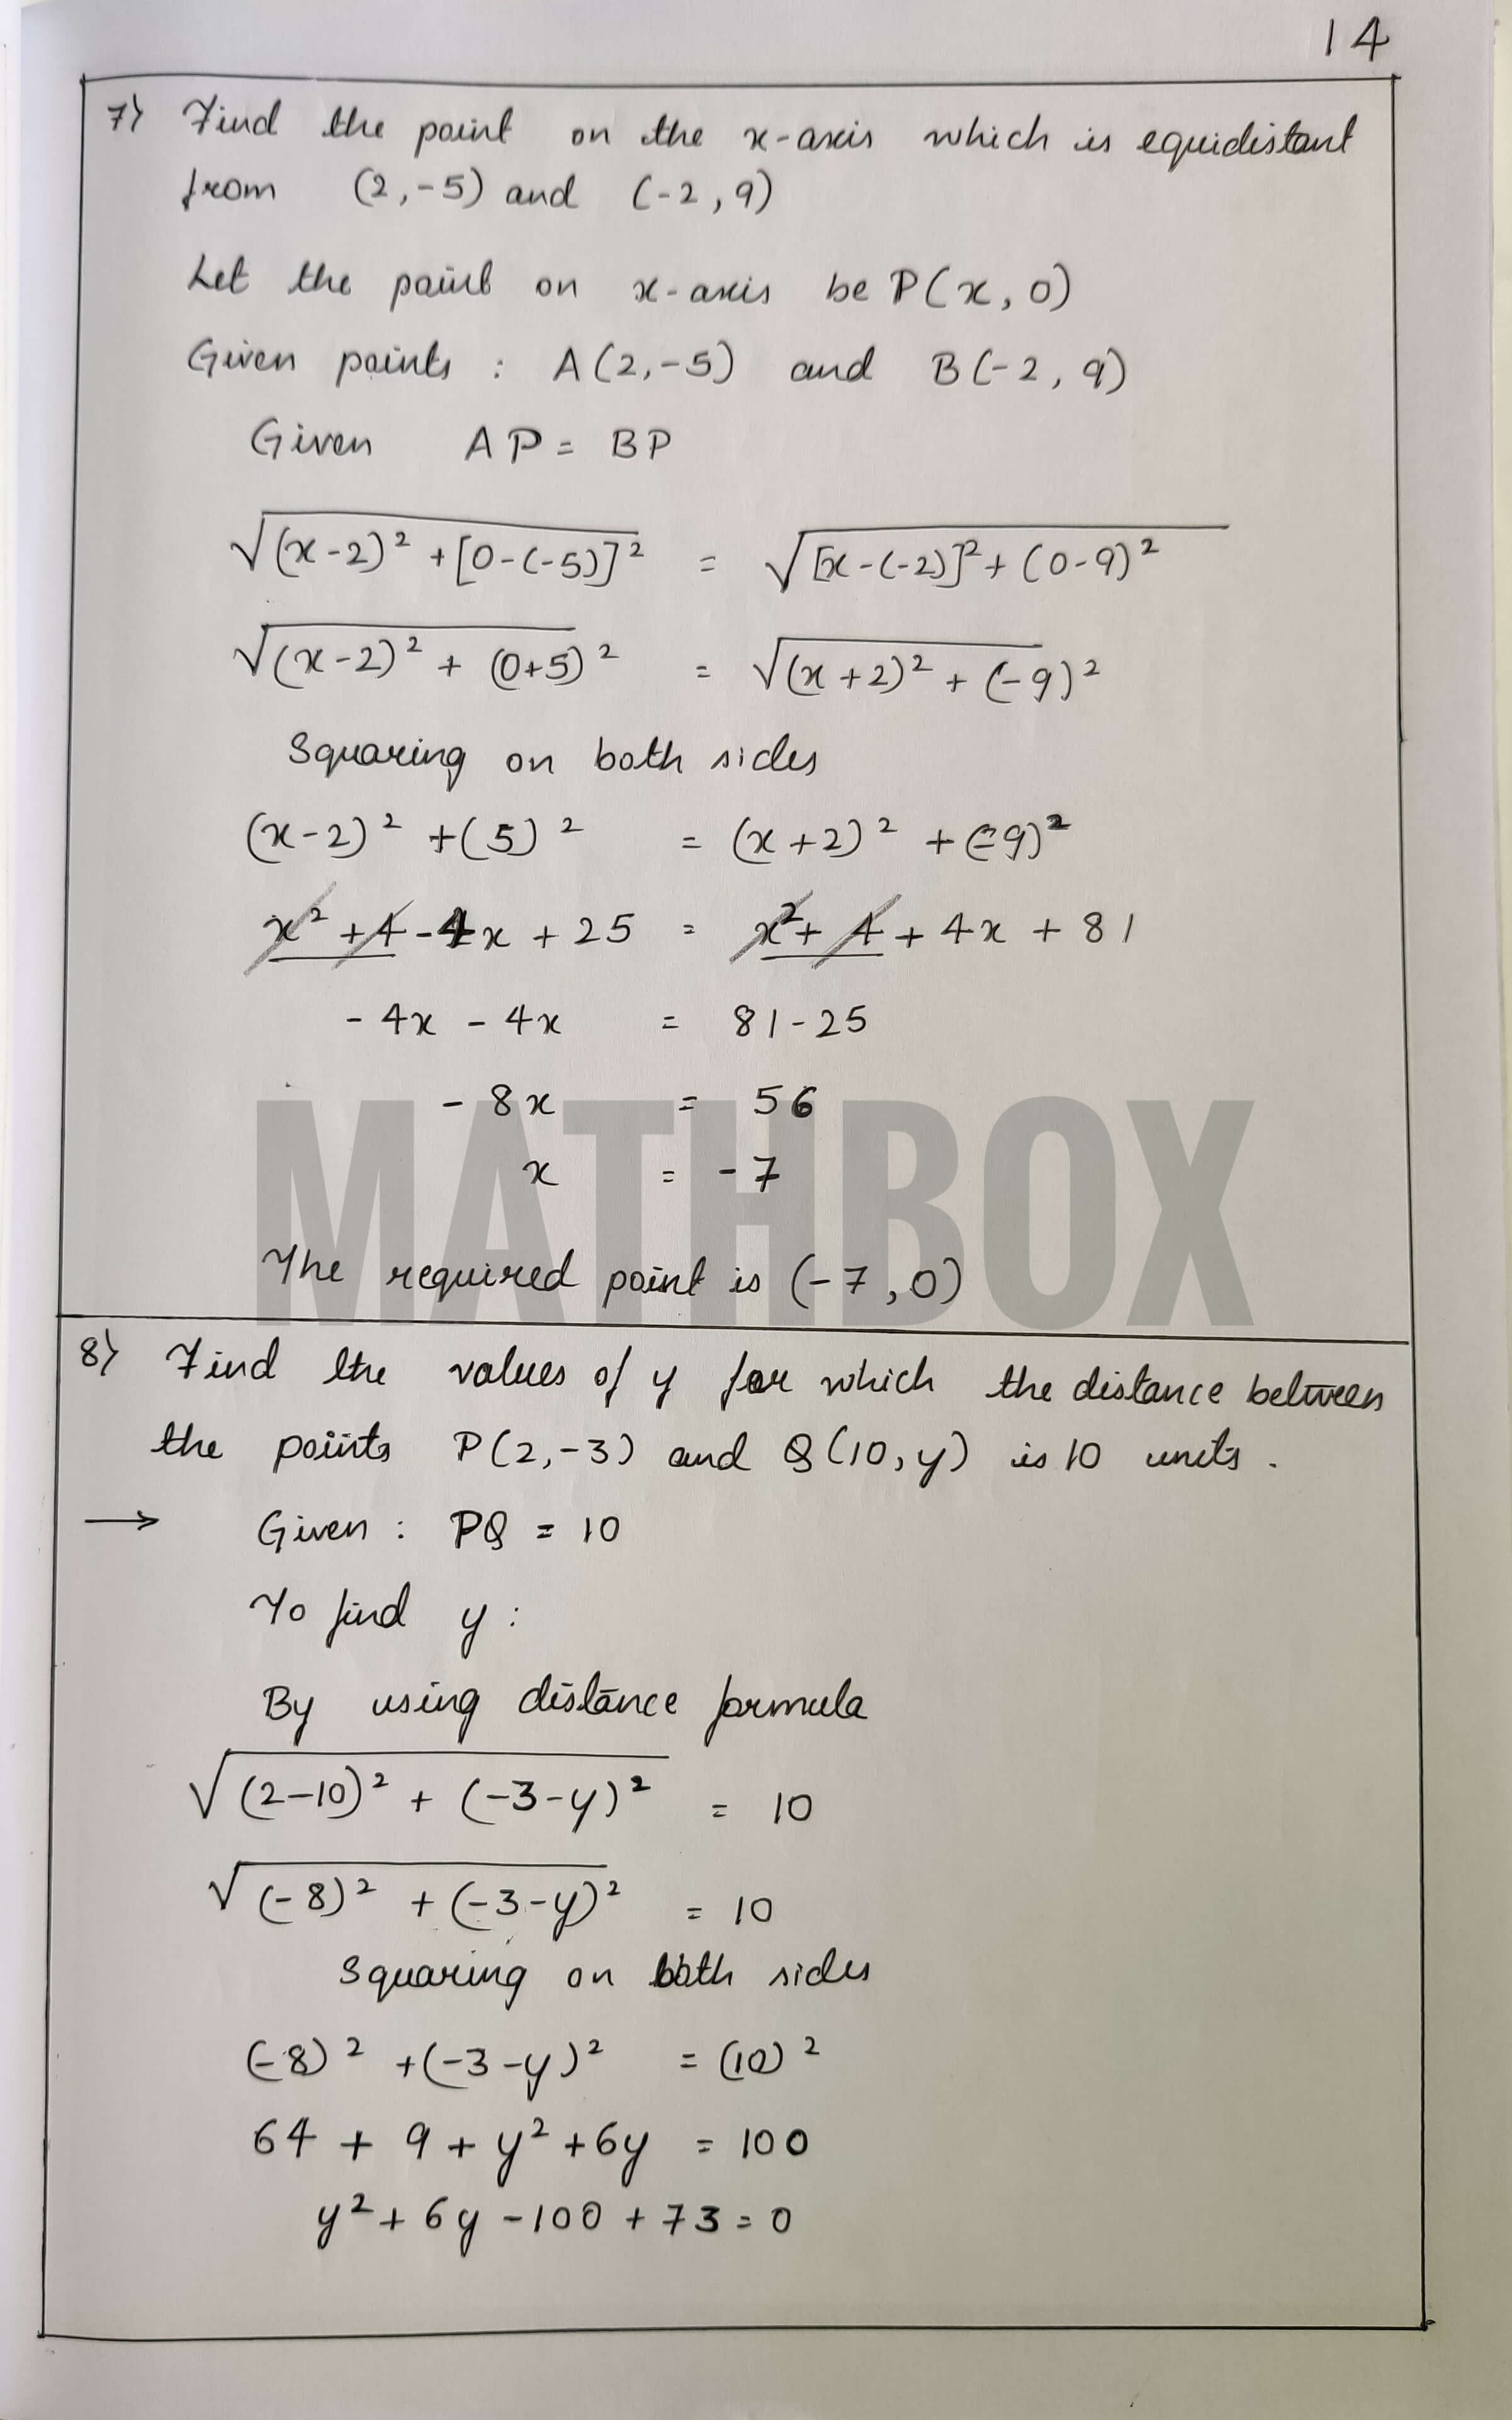 14
7) Find the point on the x-axis which is equidistant
from (2,-5) and (-2,9)
Let the point on x-axis be P(x,0)
Given points : A(2,-5) and B(-2,9)
Given AP = BP
√(x-2)² + [0-(-5)]² = √[x-(-2)]² + (0-9)²
√(x-2)² + (0+5)² = √(x+2)² + (-9)²
Squaring on both sides
(x-2)² + (5)² = (x+2)² + (-9)²
x² + 4 - 4x + 25 = x² + 4 + 4x + 81
- 4x - 4x = 81-25
- 8x = 56
x = -7
MATHBOX
The required point is (-7,0)
8) Find the values of y for which the distance between
the points P(2,-3) and Q(10,y) is 10 units.
→ Given : PQ = 10
To find y :
By using distance formula
√(2-10)² + (-3-y)² = 10
√(-8)² + (-3-y)² = 10
Squaring on both sides
(-8)² + (-3-y)² = (10)²
64 + 9 + y² + 6y = 100
y² + 6y - 100 + 73 = 0